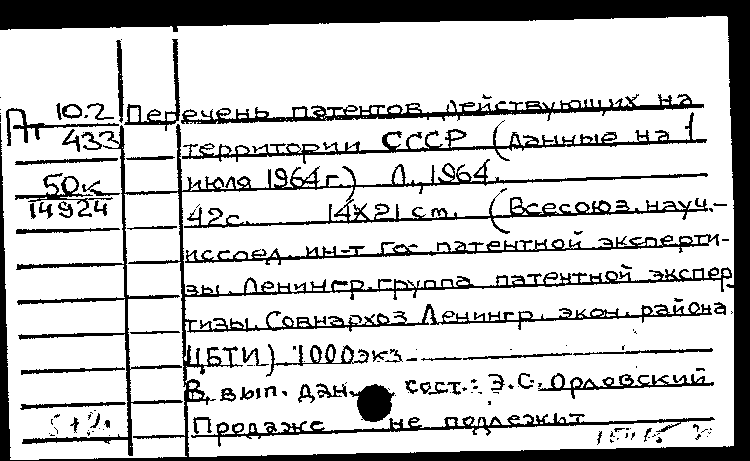 Пт 10.2 Перечень патентов, действующих на
433 территории СССР (данные на 1
50к июля 1964г.) Л., 1964.
14924 42с. 14X21 cm. (Всесоюз. науч.-
иссоед. ин-т гос патентной эксперти-
зы. Ленингр. группа патентной экспер
тизы. Совнархоз Ленингр. экон. района.
ЦБТИ) 1000экз
В. вып. дан. сост.: Э.С. Орловский
Продаже не подлежит